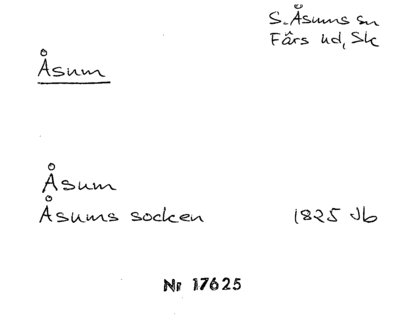 S. Åsums sn
Färs hd, Sk
Åsum
Åsum
Åsums socken 1825 Jb
Nr 17625